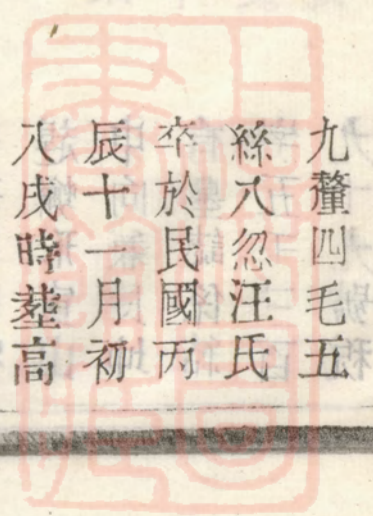 九釐四毛五
絲八忽汪氏
卒於民國丙
辰十一月初
八戌時塟高